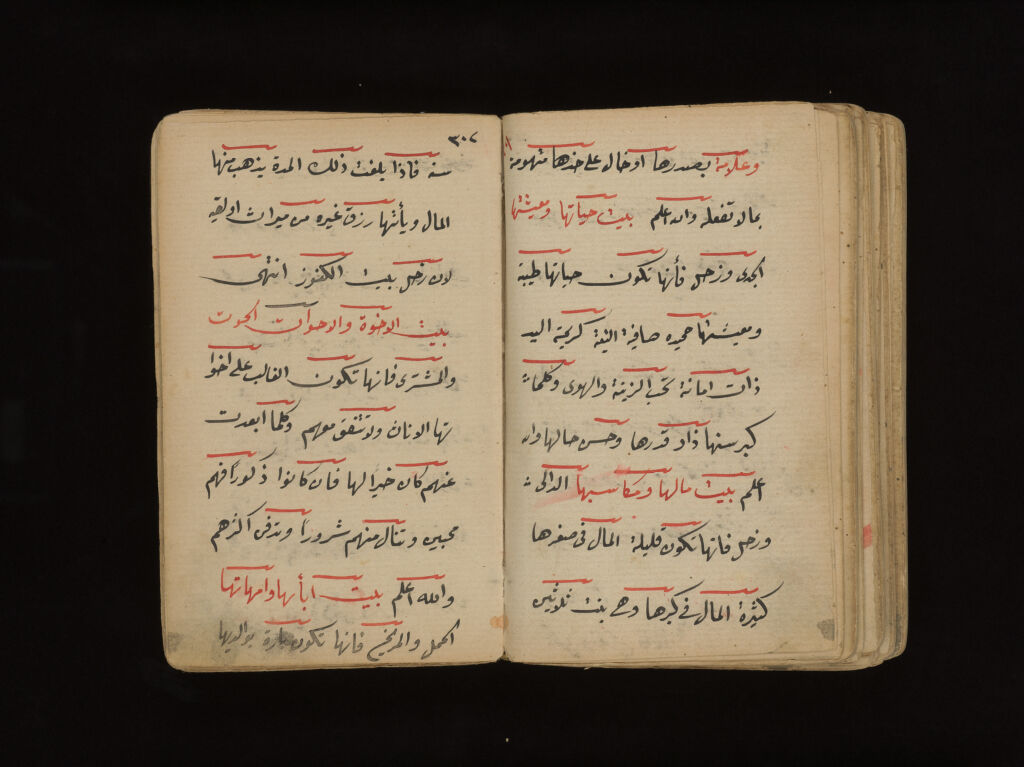 وعلامة بصدرها او خال على خدها متهومة
بمالا تفعله والله اعلم بيت حياتها ومعيشتها
الجدى وزحل فأنها تكون حياتها طيبة
ومعيشتها حميده صافية النية كريمة اليد
ذات امانة تحب الزينة والهوى وكلما
كبر سنها ذاد قدرها وحسن حالها والله
اعلم بيت مالها ومكاسبها الدالى
وزحل فانها تكون قليلة المال فى صغرها
كثيرة المال فى كبرها وهى بنت ثلاثين
٣٠٧
سنه فاذا بلغت ذلك المدة يذهب منها
المال ويأتيها رزق غيره من ميراث او لقيه
لان زحل بيت الكنوز انتهى
بيت الاخوة والاخوات الحوت
والمشترى فانها تكون الغالب على اخوا
تها الاناث ولا تتفق معهم وكلما ابعدت
عنهم كان خيرا لها فان كانوا ذكوراً فهم
محبين وتنال منهم شروراً وتدفن اكثرهم
والله اعلم بيت ابأنها وامهاتها
الحمل والمريخ فانها تكون بارة بوالديها